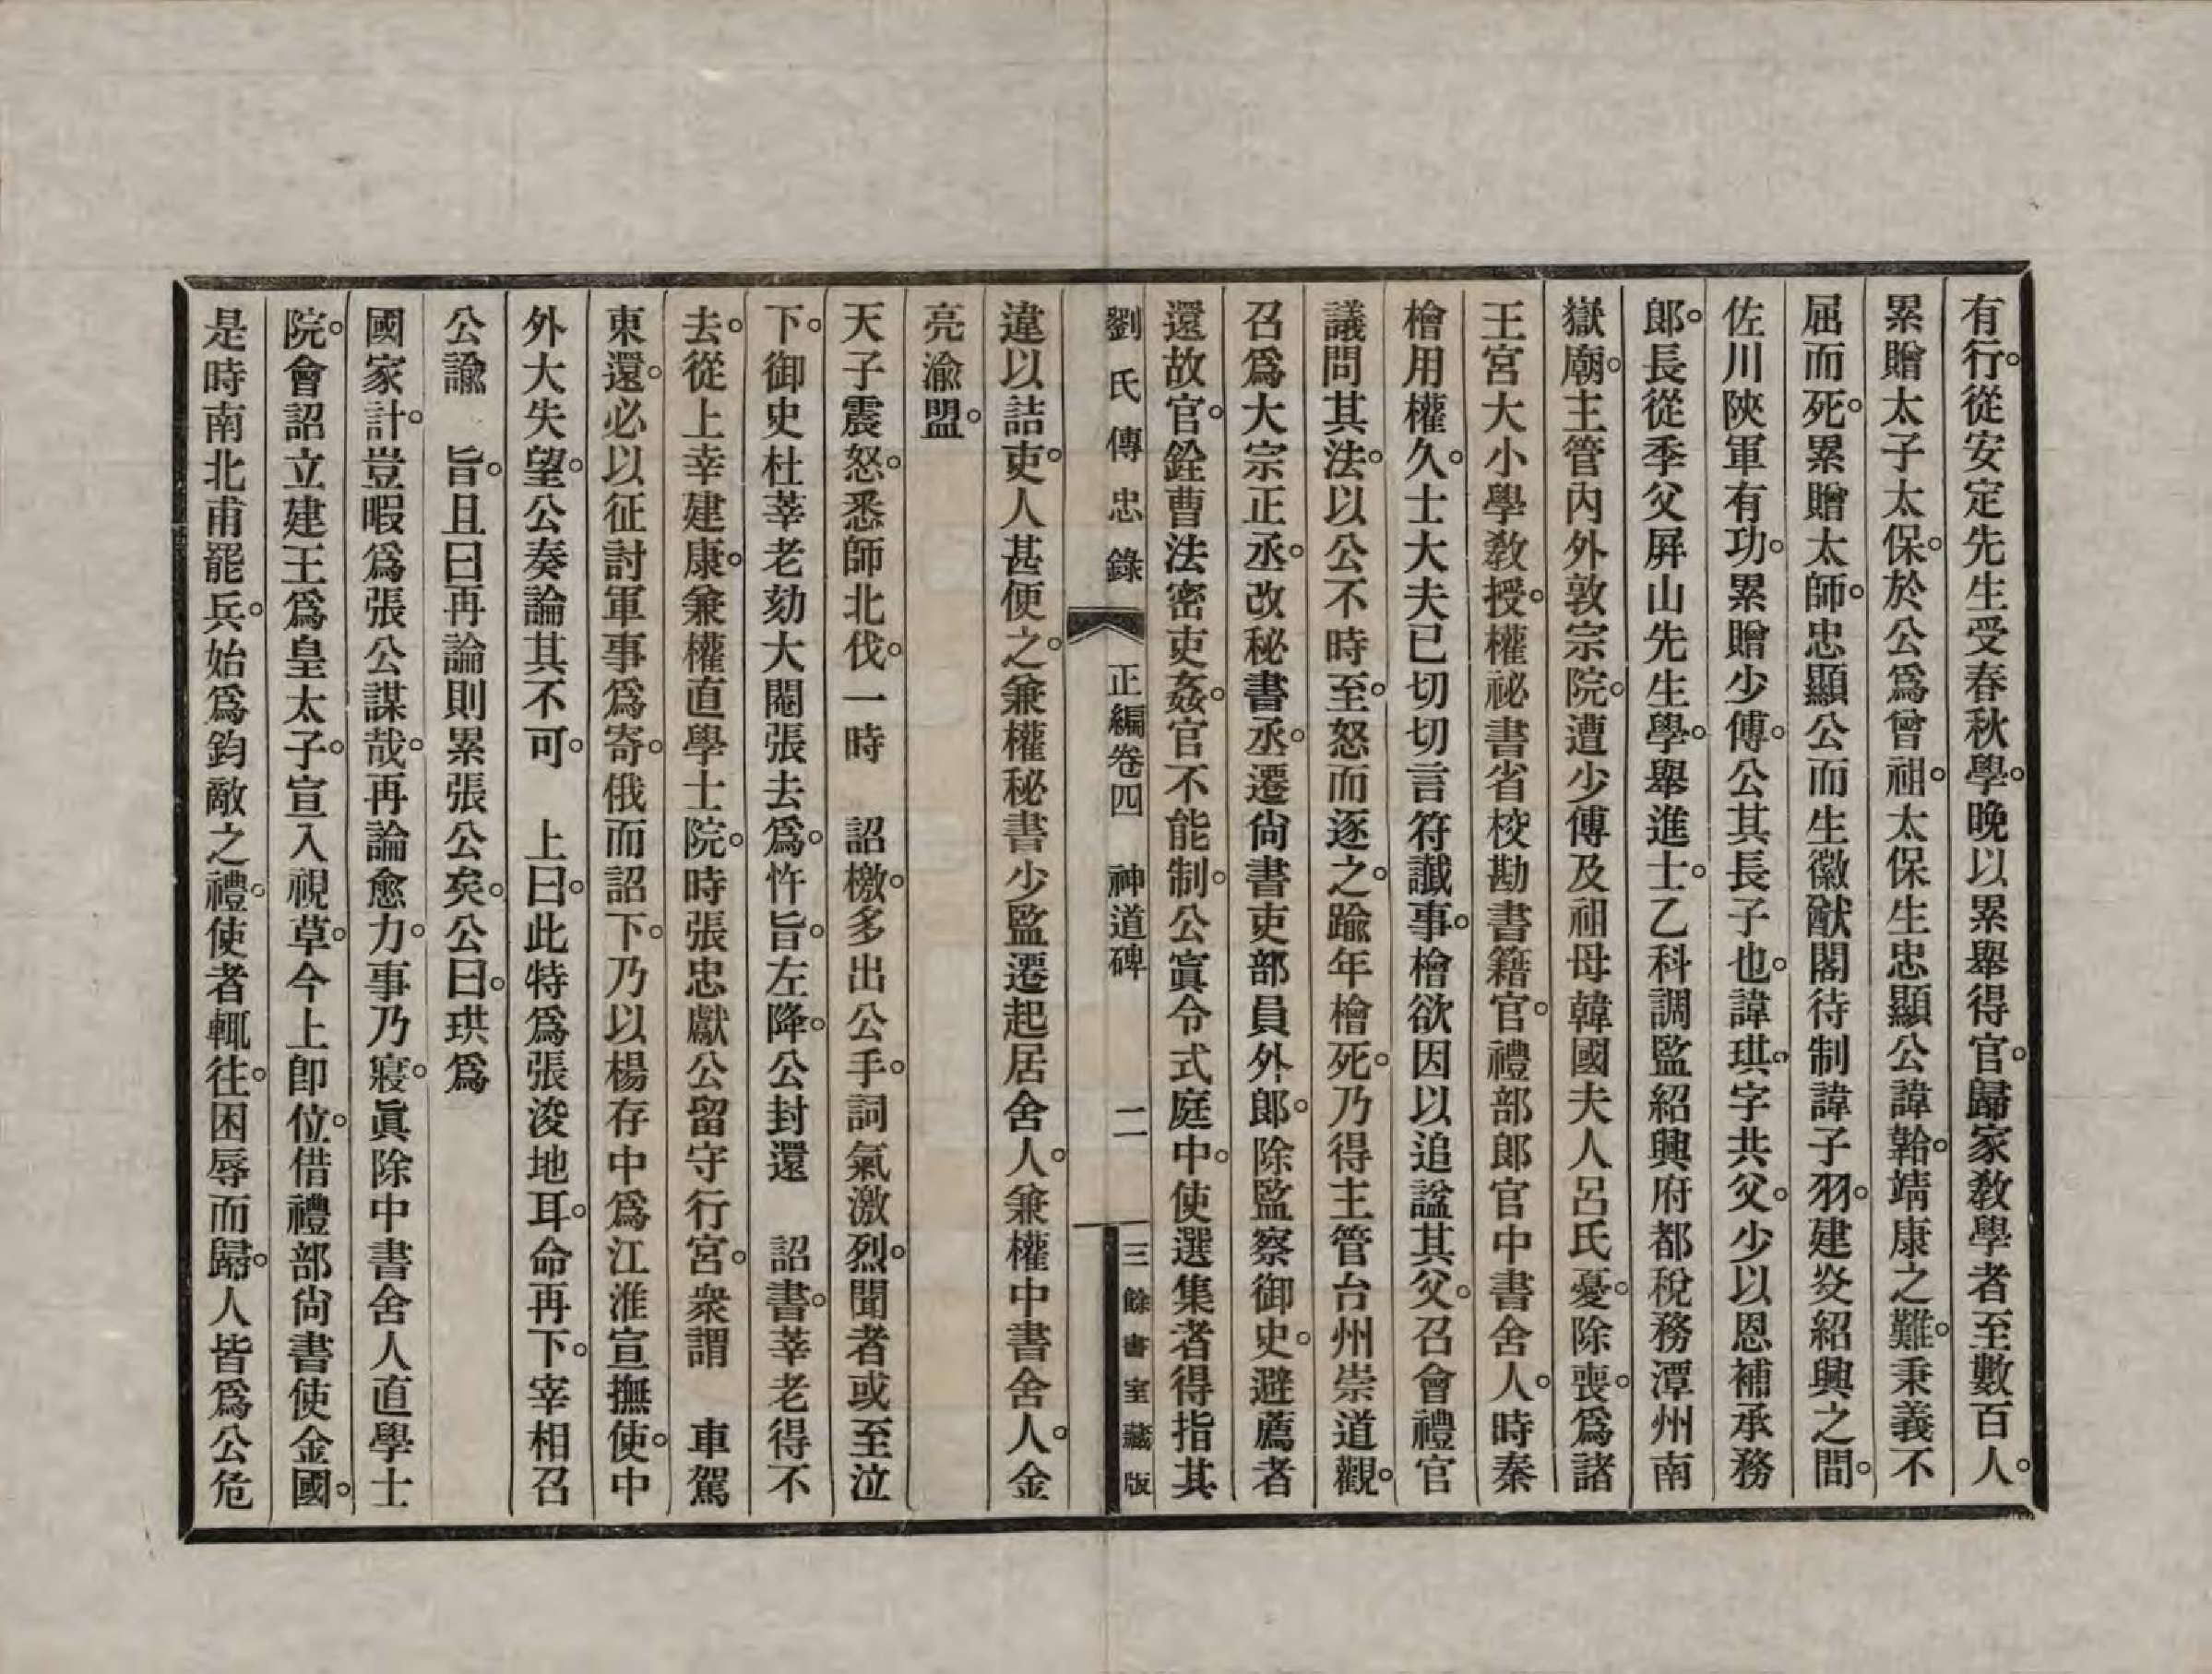 有行。從安定先生受春秋學。晚以累舉得官。歸家敎學者至數百人。
累贈太子太保。於公爲曾祖。太保生忠顯公諱韐。靖康之難。秉義不
屈而死。累贈太師。忠顯公而生徽猷閣待制諱子羽。建炎紹興之間。
佐川陝軍有功。累贈少傅。公其長子也。諱珙。字共父。少以恩補承務
郞。長從季父屛山先生學。舉進士。乙科調監紹興府都稅務潭州南
嶽廟。主管內外敦宗院。遭少傅及祖母韓國夫人呂氏憂。除喪。爲諸
王宮大小學敎授。權祕書省校勘書籍官。禮部郞官中書舍人。時秦
檜用權久。士大夫已切切言符讖事。檜欲因以追諡其父。召會禮官
議問其法。以公不時至。怒而逐之。踰年檜死。乃得主管台州崇道觀。
召爲大宗正丞。改秘書丞。遷尙書吏部員外郞。除監察御史。避薦者
還故官。銓曹法密吏姦。官不能制。公寘令式庭中。使選集者得指其
劉氏傳忠錄 正編卷四 神道碑 二 三餘書室藏版
違以詰吏。人甚便之。兼權秘書少監遷起居舍人。兼權中書舍人。金
亮渝盟。
天子震怒。悉師北伐。一時 詔檄。多出公手。詞氣激烈。聞者或至泣
下。御史杜莘老劾大閹張去爲。忤旨。左降。公封還 詔書。莘老得不
去。從上幸建康。兼權直學士院。時張忠獻公留守行宮。衆謂 車駕
東還。必以征討軍事爲寄。俄而詔下。乃以楊存中爲江淮宣撫使。中
外大失望。公奏論其不可。 上曰。此特爲張浚地耳。命再下。宰相召
公諭 旨。且曰再論則累張公矣。公曰。珙爲
國家計。豈暇爲張公謀哉。再論愈力。事乃寢。眞除中書舍人直學士
院。會詔立建王爲皇太子。宣入視草。今上卽位。借禮部尙書使金國。
是時南北甫罷兵。始爲鈞敵之禮。使者輒往。困辱而歸。人皆爲公危